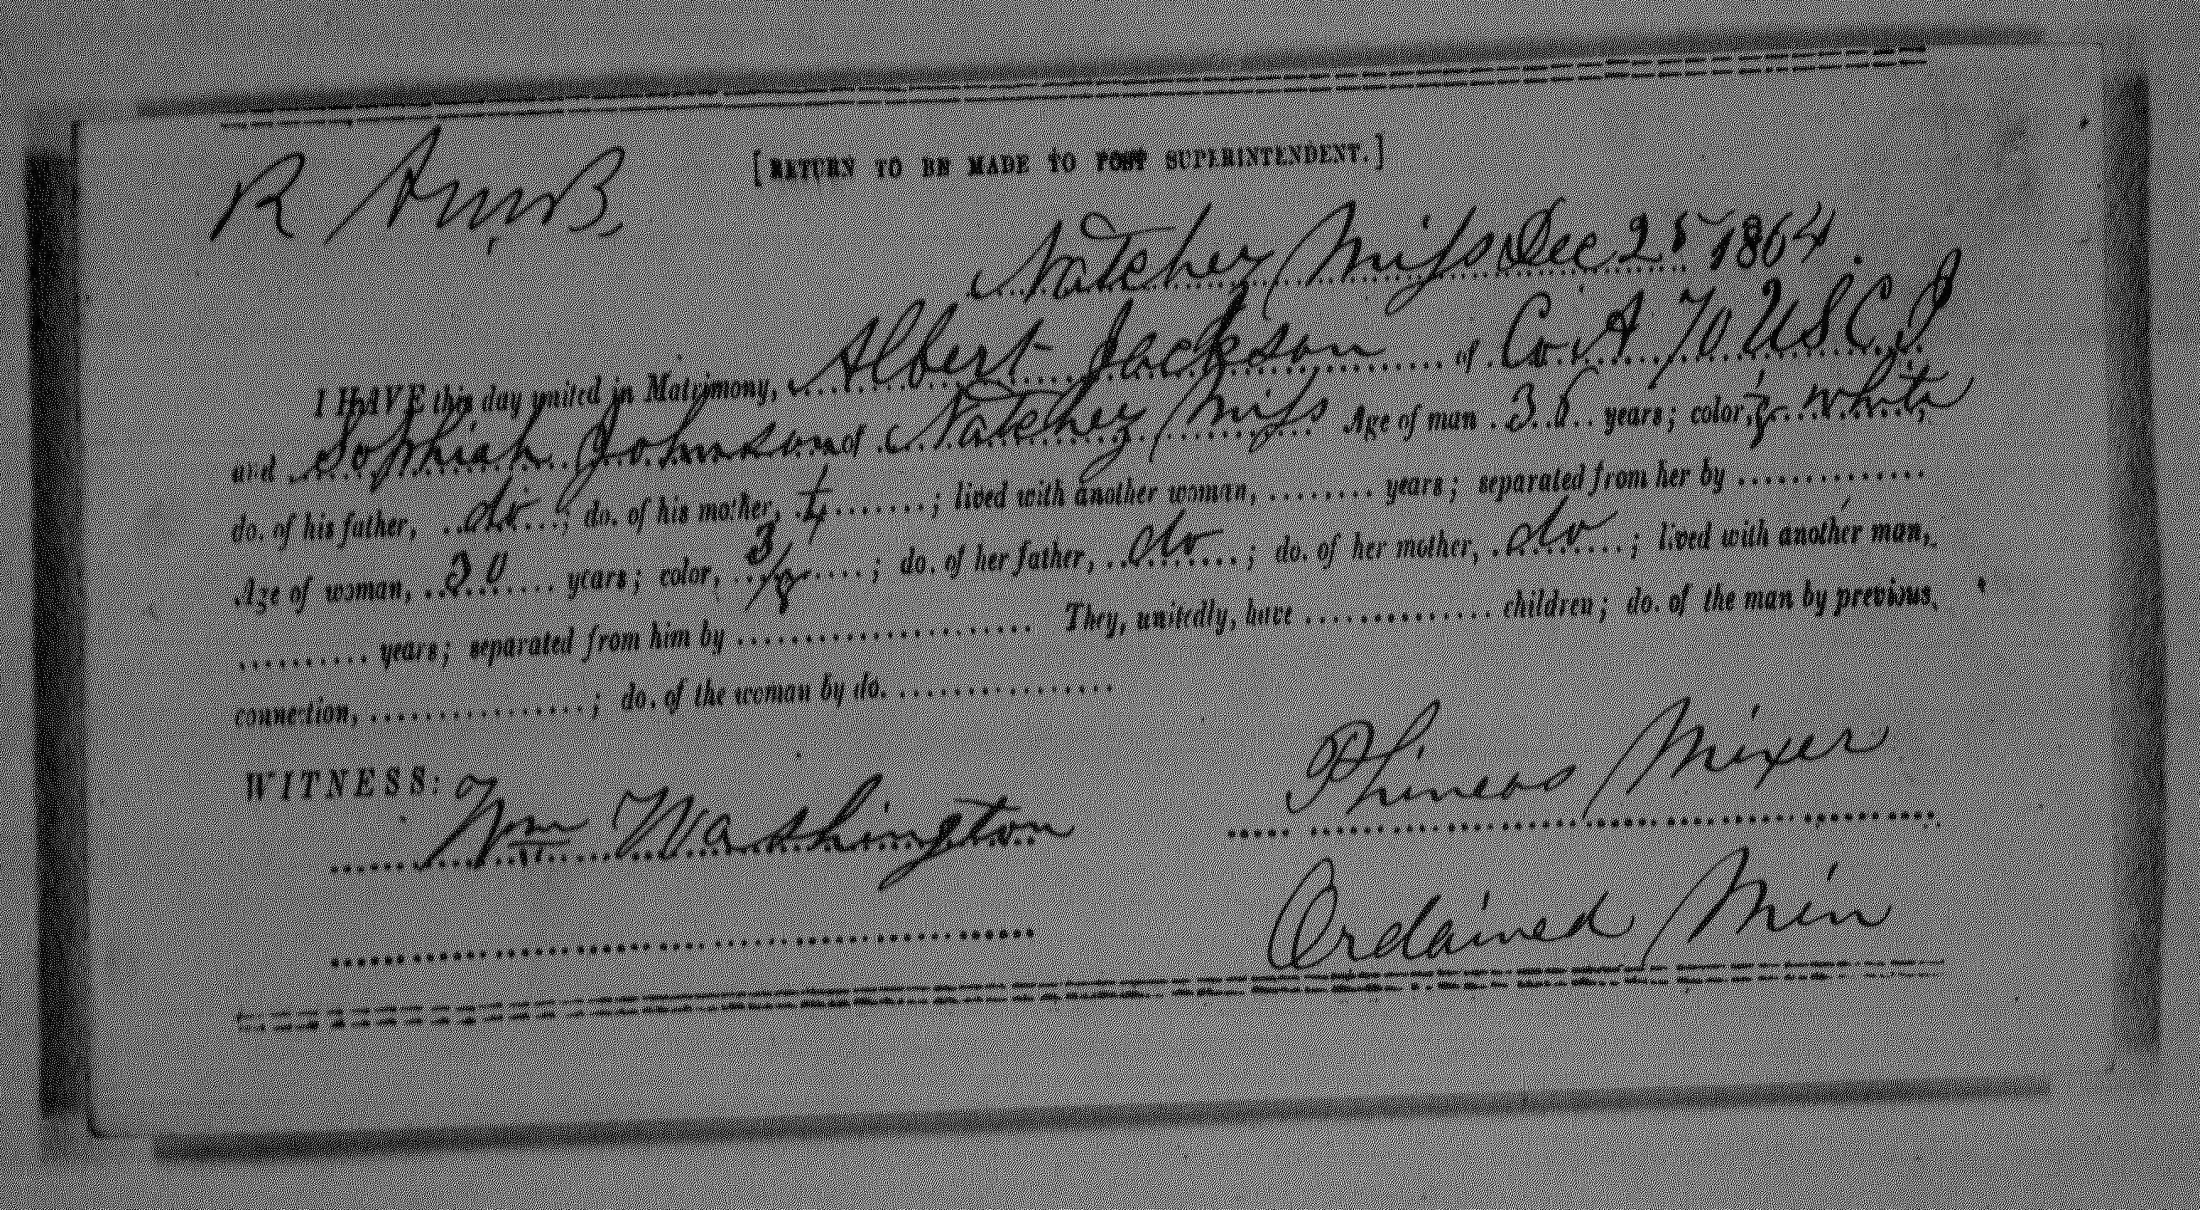 [RETURN TO BE MADE TO POST SUPERINTENDENT.]
Natchez Miss Dec 25 1864.
I HAVE this day united in Matrimony, Albert Jackson of Co. A 70 USCI
and Sophiah Johnson of Natchez Miss Age of man 38 years; color, white
do. of his father, do; do. of his mother, ; lived with another woman, years; separated from her by
Age of woman, 30 years; color, 3/8; do. of her father, do; do. of her mother, do; lived with another man,
years; separated from him by They, unitedly, have children; do. of the man by previous
connection, ; do. of the woman by do.
WITNESS:
Wm Washington Phineas Mixer
Ordained Min